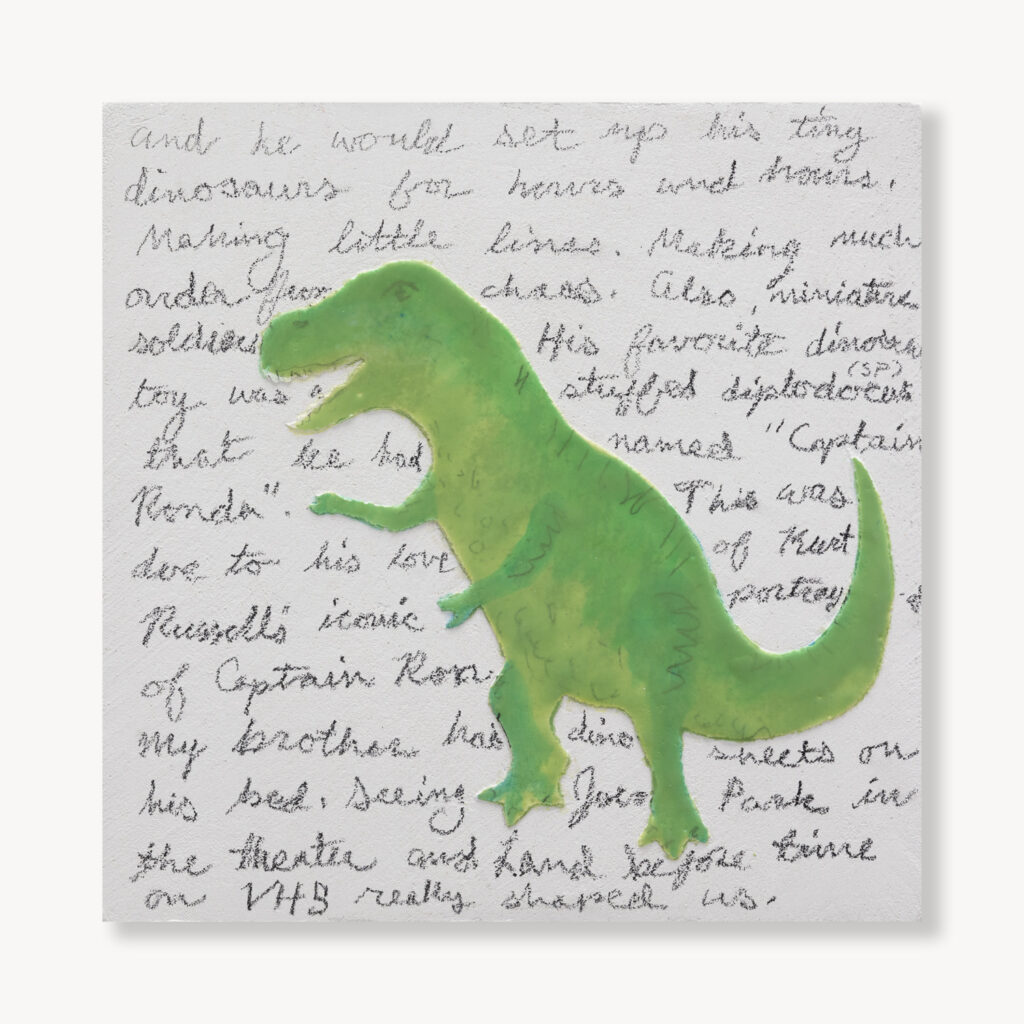 and he would set up his tiny
dinosaurs for hours and hours.
Making little lines. Making much
order from chaos. Also, miniature
soldiers His favorite dinosau
toy was a stuffed diplodocus (SP)
that he had named "Captain
Ronda". This was
due to his love of Kurt
Russell's iconic portray
of Captain Ron.
My brother had dino sheets on
his bed. Seeing Park in
the theater and Land before time
on VHS really shaped us.